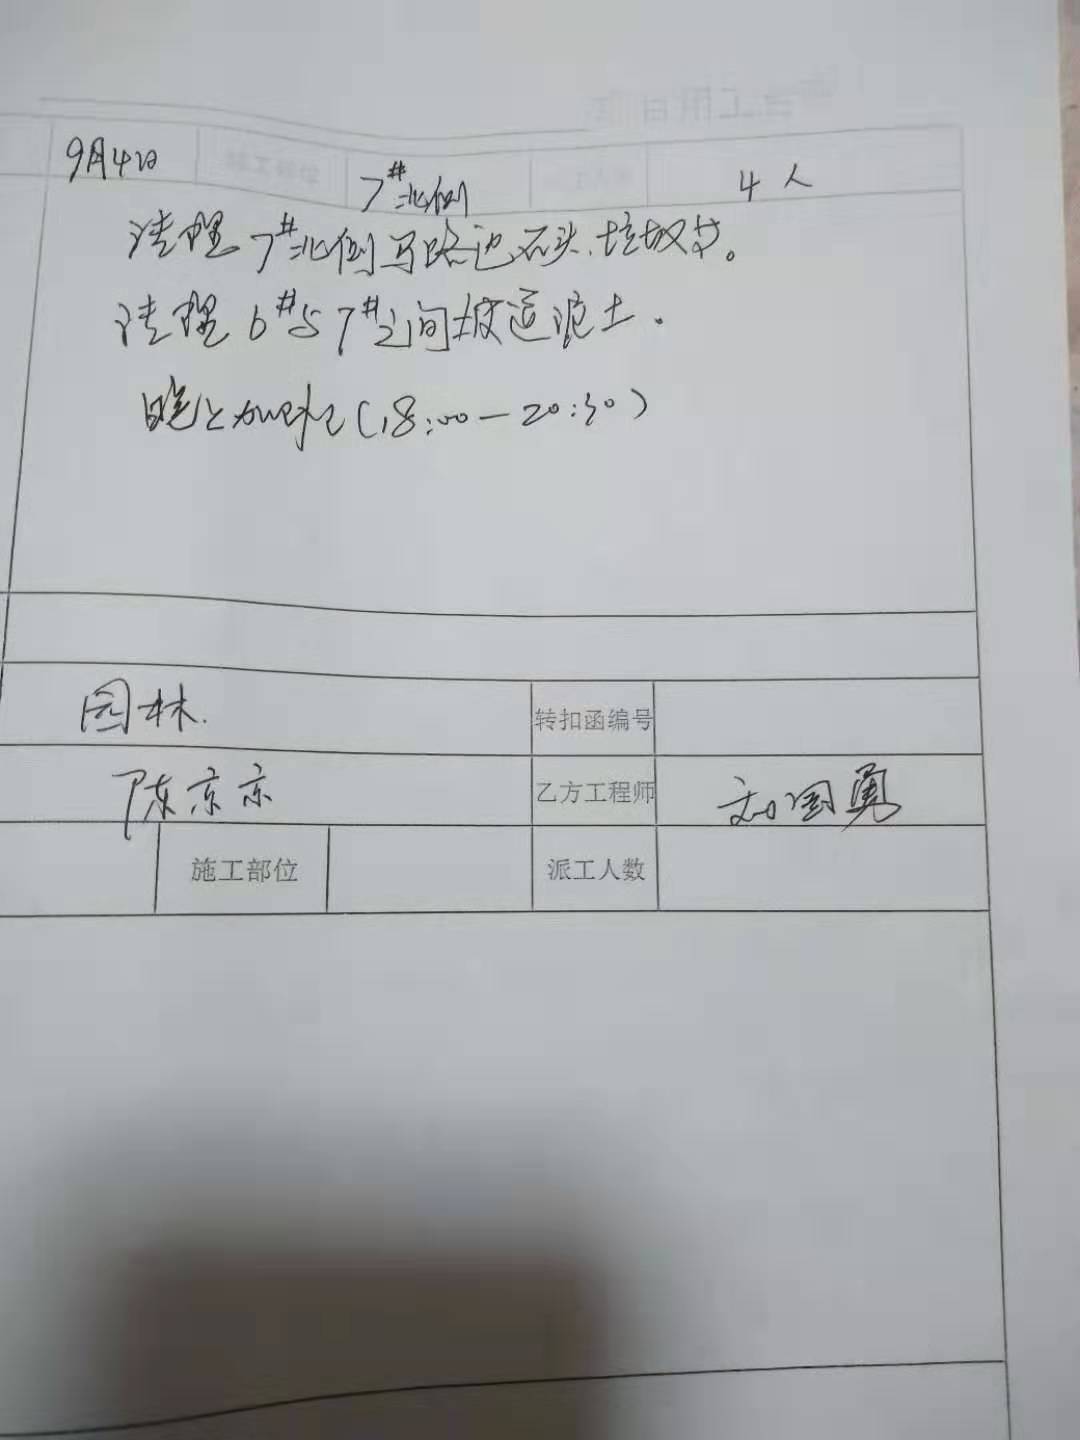 9月4日 7#北侧 4人
清理7#北侧马路边石头.垃圾等。
清理6#与7#之间坡道泥土.
晚上加班(18:00—20:30)
园林. 转扣函编号
陈京京 乙方工程师 刘国勇
施工部位 派工人数